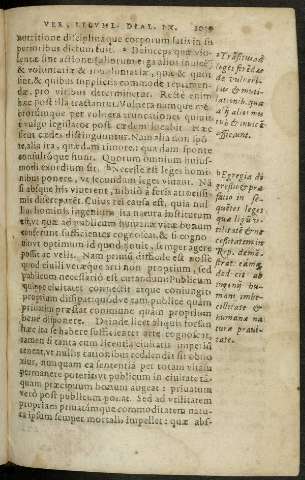 VEL LEGVM. DIAL. IX.
nutritione disciplináque corporum satis in su
perioribus dictum fuit. Deinceps quæ vio-
lentæ sine actiones aliorum erga alios inuicē
& voluntariæ & inuoluntariæ, quæ & quot
sint, & quibus suppliciis commode reprimen-
dæ, pro viribus determinetur. Recte enim
hæc post illa tractantur. Vulnera
per vulnera truncationes
vulgo legislator post cædem locabit. Hæc
sicut cædes distinguuntur. Nam alia
te, alia ira, quædam timore: quædam sponte
consultóque fiunt. Quorum omnium huius-
modi exordium sit. Necesse est leges homi-
nibus ponere, vt secundum leges viuant. Nā
si absque his viuerent, nihilo à feris atrocissi-
mis discreparēt. Cuius rei causa est, quia nul-
lius hominis ingenium ita natura institutum
est, vt quæ ad publicum humanæ vitæ bonum
conferunt sufficienter cognoscat, & si cogno-
uerit optimum id quod nouit, semper agere
possit ac velit. Nam primū difficile est nosse
quòd ciuili veræque arti non proprium, sed
publicum necessariò est curandum. Publicum
quippe ciuitatem connectit atque coniungit:
proprium dissipat: quódve tam publicè quàm
priuatim præstat commune quàm proprium
bene disponere. Deinde licet aliquis forsan
hæc ita se habere sufficienter arte cognoscat,
tamen si tanta cum licentia ciuitati imperi
teneat, vt nullis rationibus reddendis sit obno
xius, nunquam ea sententia per totam vitam
permanere poterit, vt publicum in ciuitate tā-
quam præcipuum bonum augeat: priuatum
verò post publicum ponat. Sed ad vtilitatem
propriam priuatámque commoditatem natu-
ra ipsum semper mortalis impellet: quæ abs-
Trāsitus ad
leges ferēdas
de vulnerib.
& muti-
lationib. quæ
ab aliis
& inuicē
efficiunt.
b Egregia di
gressio & præ
fatio in se-
quētes leges
qua legū v-
tilitatē & ne
cessitatem in
Rep. demō-
strat: eam
ducit ab
ingenii hu-
mani imbe-
cillitate &
humanæ na
turæ praui-
tate.